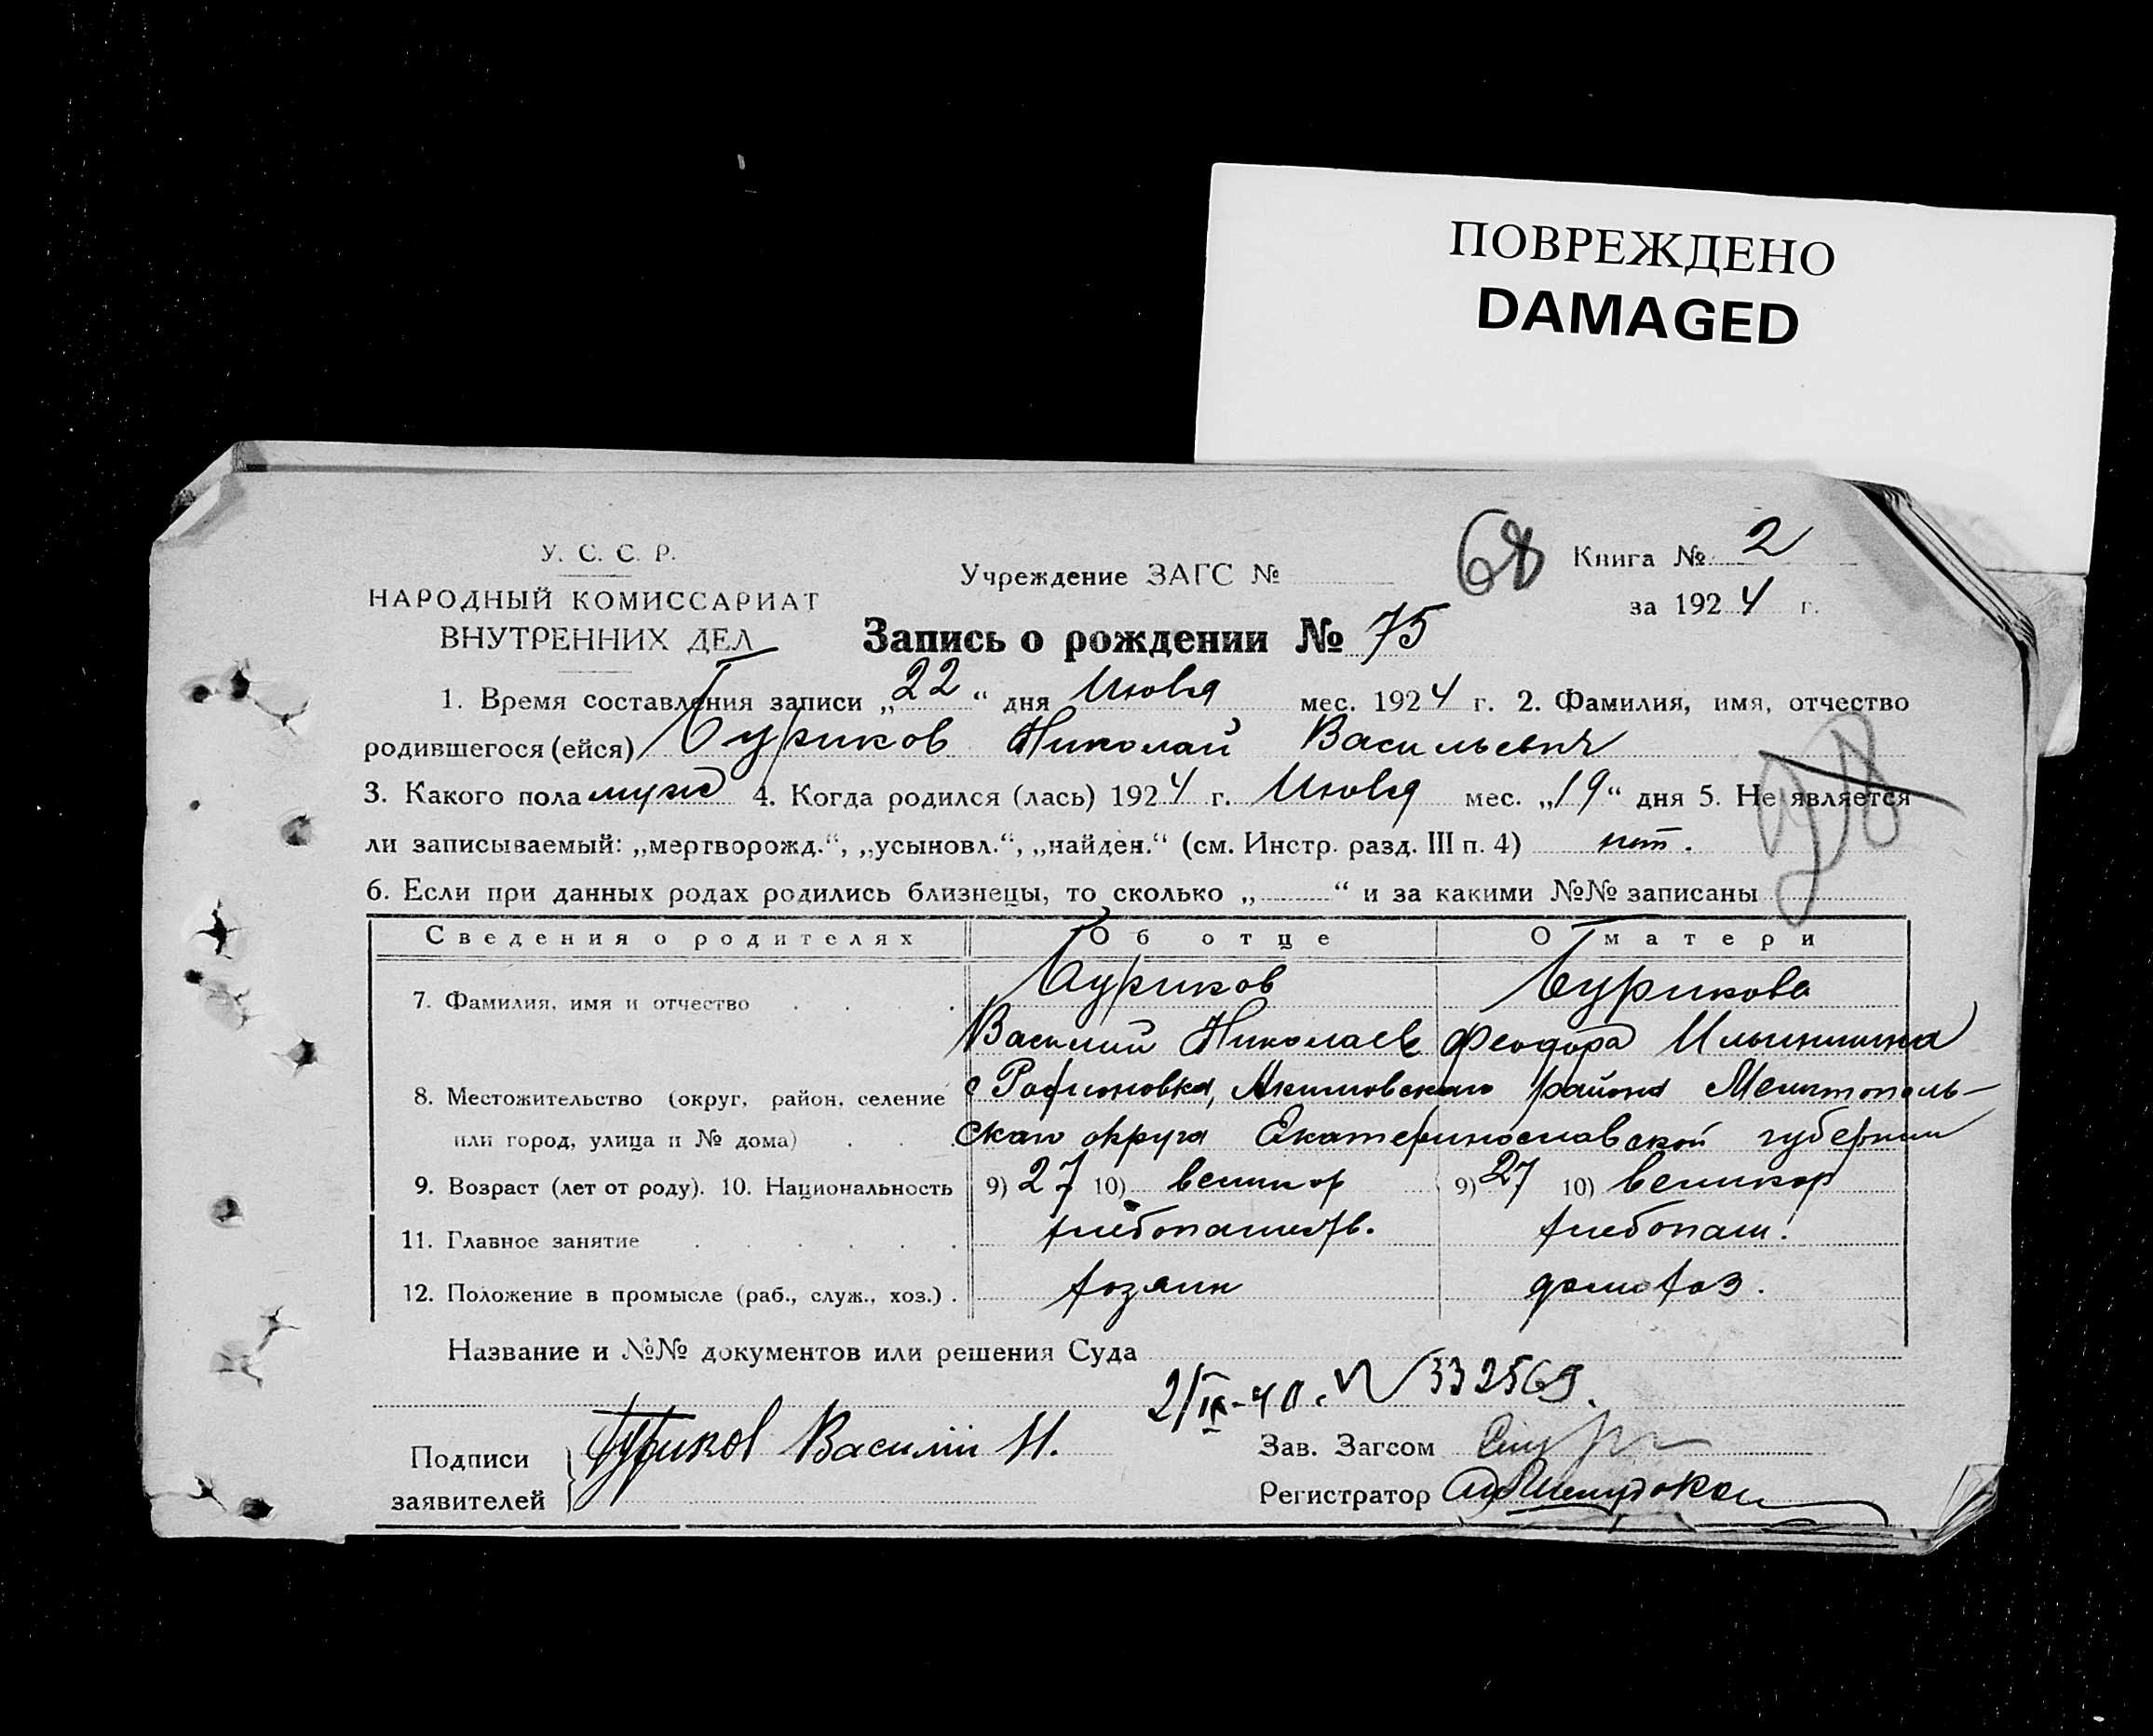 ПОВРЕЖДЕНО
DAMAGED
У. С. С. Р.
НАРОДНЫЙ КОМИССАРИАТ
ВНУТРЕННИХ ДЕЛ
Учреждение ЗАГС №
68
Книга № 2
за 1924 г.
Запись о рождении № 75
1. Время составления записи „22“ дня Июля мес. 1924 г. 2. Фамилия, имя, отчество
родившегося (ейся) Буриков Николай Васильевич
3. Какого пола муж 4. Когда родился (лась) 1924 г. Июля мес. „19“ дня 5. Не является
ли записываемый: „мертворожд.“, „усыновл.“, „найден.“ (см. Инстр. разд. III п. 4) нет.
6. Если при данных родах родились близнецы, то сколько „ “ и за какими №№ записаны
Сведения о родителях Об отце О матери
7. Фамилия, имя и отчество Буриков Бурикова
Василий Николаев Феодора
8. Местожительство (округ, район, селение с Родионовка, Акимовскаго района Мелитополь-
или город, улица и № дома) скаго округа Екатеринославской губернии
9. Возраст (лет от роду). 10. Национальность 9) 27 10) великор 9) 27 10) великор
11. Главное занятие хлебопаш.
12. Положение в промысле (раб., служ., хоз.) хозяин домохоз.
Название и №№ документов или решения Суда
2/IX-40. № 332569.
Подписи
заявителей
Буриков Василий Н.
Зав. Загсом
Регистратор